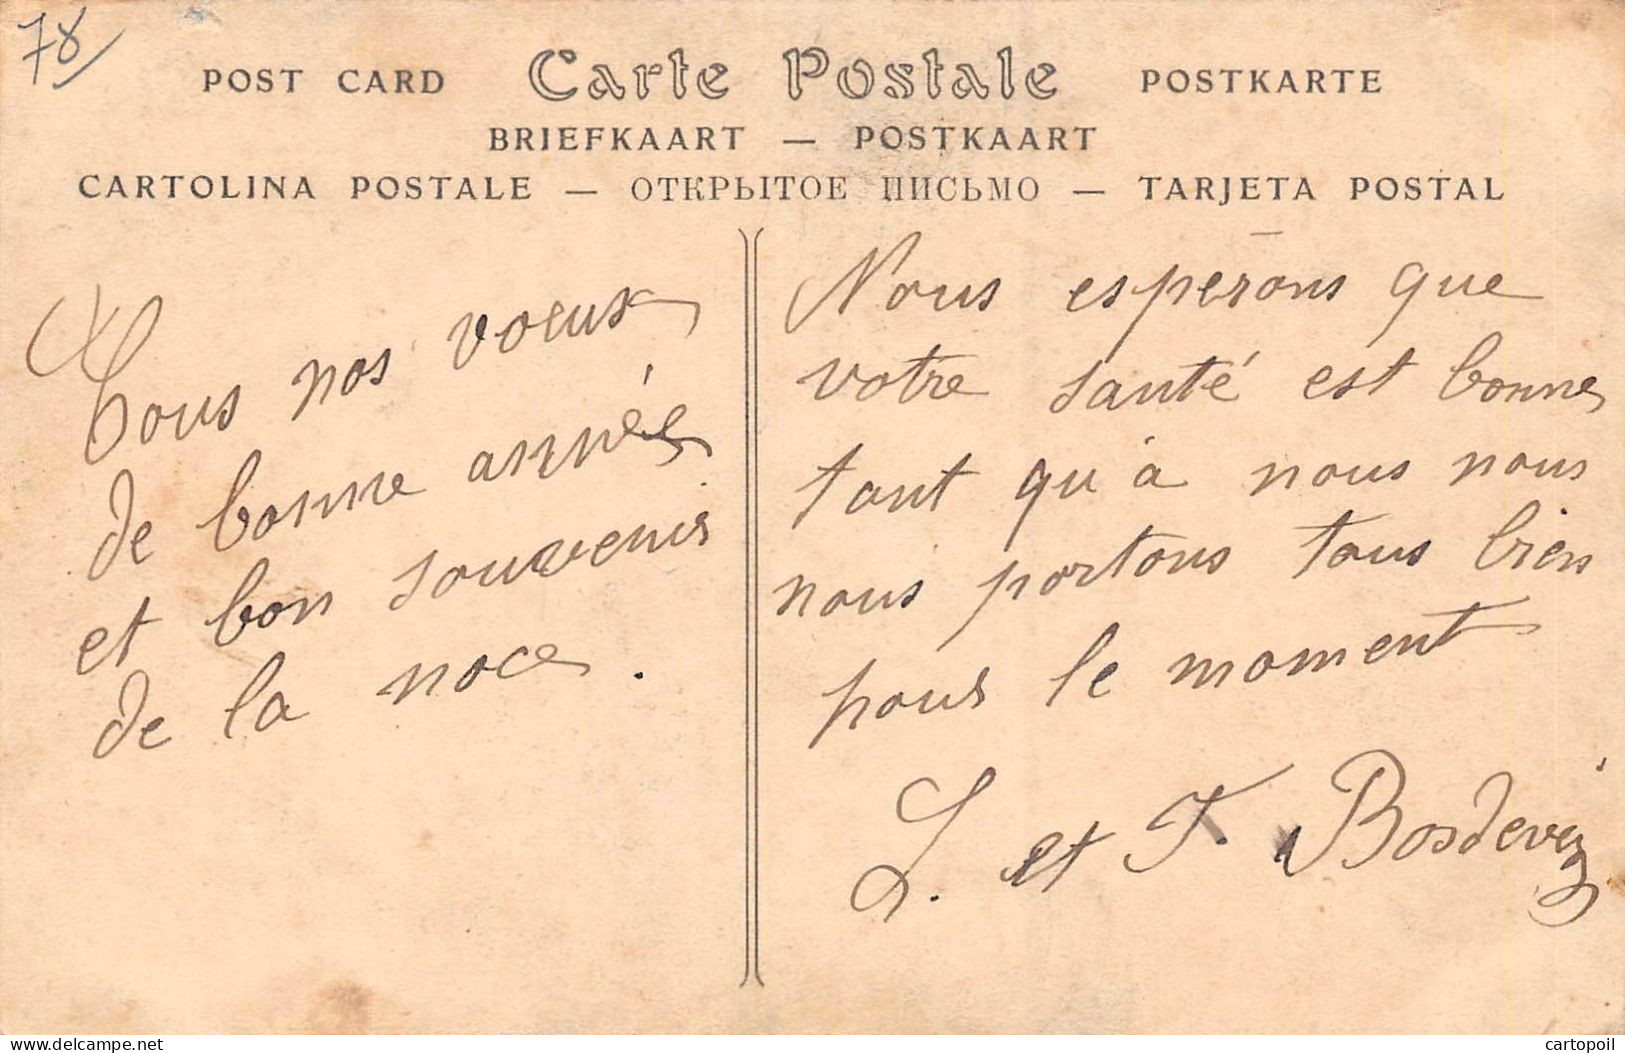 78
POST CARD Carte Postale POSTKARTE
BRIEFKAART — POSTKAART
CARTOLINA POSTALE — ОТКРЫТОЕ ПИСЬМО — TARJETA POSTAL
Tous nos voeux
de bonne année
et bon souvenir
de la noce.
Nous esperons que
votre santé est bonne
tant qu'à nous nous
nous portons tous bien
pour le moment
L. et F. Bosdevez
Delcampe.net
cartopoil